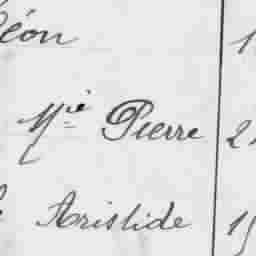 Léon 1
Mie Pierre 2
Aristide 15